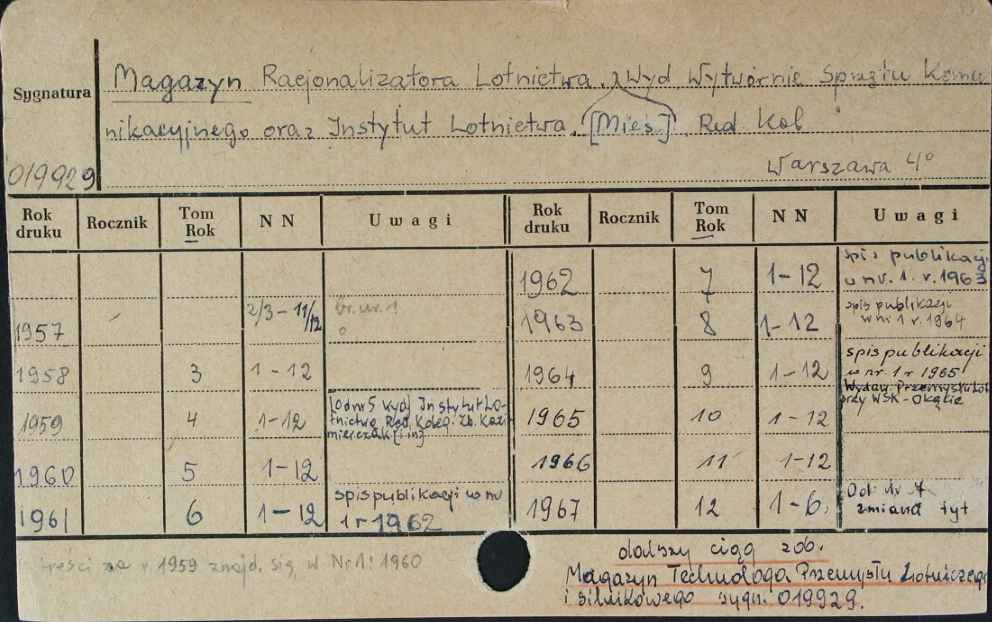 Magazyn Racjonalizatora Lotnictwa, Wyd Wytwórnie Sprzętu Komu
nikacyjnego oraz Instytut Lotnictwa. [Mies] Red Kol
Warszawa 4°
Sygnatura
019929
Rok druku Rocznik Tom Rok NN Uwagi Rok druku Rocznik Tom Rok NN Uwagi
1962 7 1-12 spis publikacji w nr. 1. r. 1963
1957 2/3-11/12 br. nr. 1 1963 8 1-12 spis publikacji w nr 1 r 1964
1958 3 1-12 1964 9 1-12 spis publikacji w nr 1 r 1965
1959 4 1-12 [od nr 5 wyd] Instytut Lotnictwa Red. Koleg. Zb. Kazimierczak [i in] 1965 10 1-12 Wydaw. Przemysłu Lot przy WSK-Okęcie
1960 5 1-12 1966 11 1-12
1961 6 1-12 spis publikacji w nr 1 r 1962 1967 12 1-6. Od nr 7 zmiana tyt
treści za r 1959 znajd. się w Nr 1: 1960
dalszy ciąg zob.
Magazyn Technologa Przemysłu Lotniczego
i silnikowego sygn. 019929.